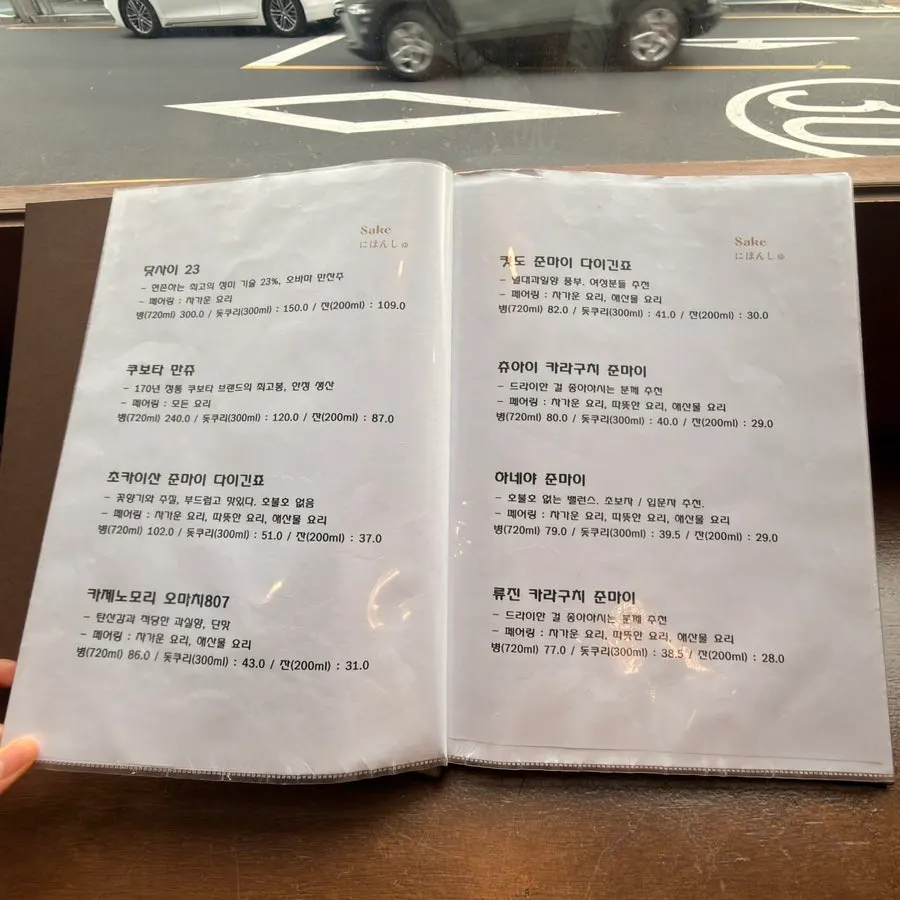 Sake
にほんしゅ
닷사이 23
- 현존하는 최고의 정미 기술 23%, 오바마 만찬주
- 페어링 : 차가운 요리
병(720ml) 300.0 / 돗쿠리(300ml) : 150.0 / 잔(200ml) : 109.0
쿠보타 만쥬
- 170년 정통 쿠보타 브랜드의 최고봉, 한정 생산
- 페어링 : 모든 요리
병(720ml) 240.0 / 돗쿠리(300ml) : 120.0 / 잔(200ml) : 87.0
초카이산 준마이 다이긴죠
- 꽃향기와 주질, 부드럽고 맛있다. 호불호 없음
- 페어링 : 차가운 요리, 따뜻한 요리, 해산물 요리
병(720ml) 102.0 / 돗쿠리(300ml) : 51.0 / 잔(200ml) : 37.0
카제노모리 오마치807
- 탄산감과 적당한 과실향, 단맛
- 페어링 : 차가운 요리, 해산물 요리
병(720ml) 86.0 / 돗쿠리(300ml) : 43.0 / 잔(200ml) : 31.0
Sake
にほんしゅ
킷도 준마이 다이긴죠
- 열대과일향 풍부. 여성분들 추천
- 페어링 : 차가운 요리, 해산물 요리
병(720ml) 82.0 / 돗쿠리(300ml) : 41.0 / 잔(200ml) : 30.0
츄아이 카라구치 준마이
- 드라이한 걸 좋아하시는 분께 추천
- 페어링 : 차가운 요리, 따뜻한 요리, 해산물 요리
병(720ml) 80.0 / 돗쿠리(300ml) : 40.0 / 잔(200ml) : 29.0
아네야 준마이
- 호불호 없는 밸런스. 초보자 / 입문자 추천.
- 페어링 : 차가운 요리, 따뜻한 요리, 해산물 요리
병(720ml) 79.0 / 돗쿠리(300ml) : 39.5 / 잔(200ml) : 29.0
류진 카라구치 준마이
- 드라이한 걸 좋아하시는 분께 추천
- 페어링 : 차가운 요리, 따뜻한 요리, 해산물 요리
병(720ml) 77.0 / 돗쿠리(300ml) : 38.5 / 잔(200ml) : 28.0
30